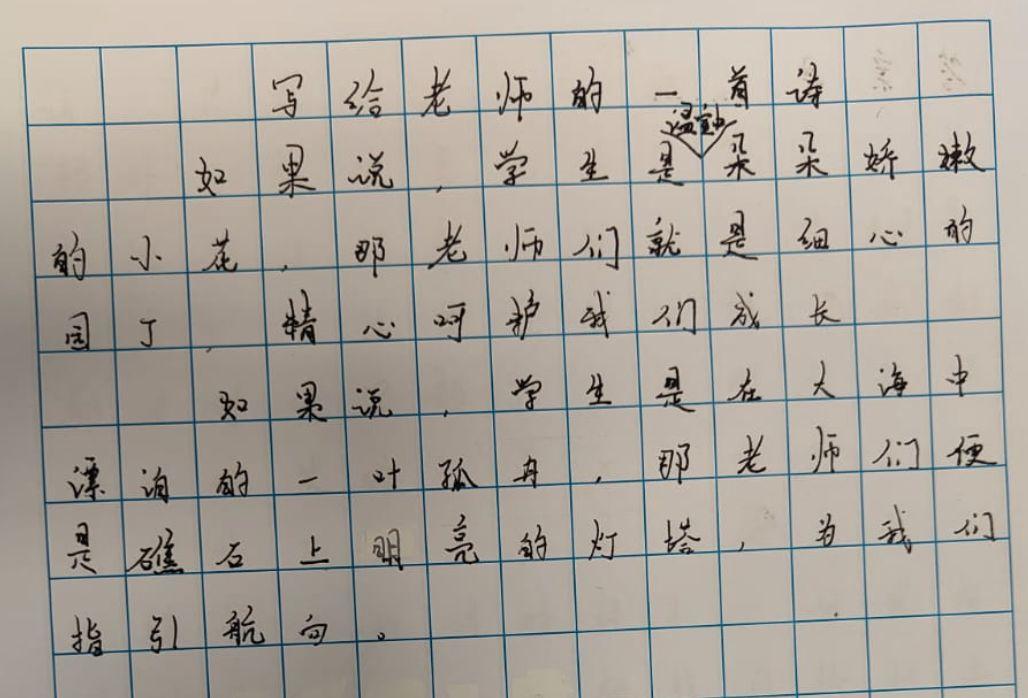 写给老师的一首诗
如果说，学生是温室朵朵娇嫩
的小花，那老师们就是细心的
园丁，精心呵护我们成长
如果说，学生是在大海中
漂泊的一叶孤舟，那老师们便
是礁石上明亮的灯塔，为我们
指引航向。